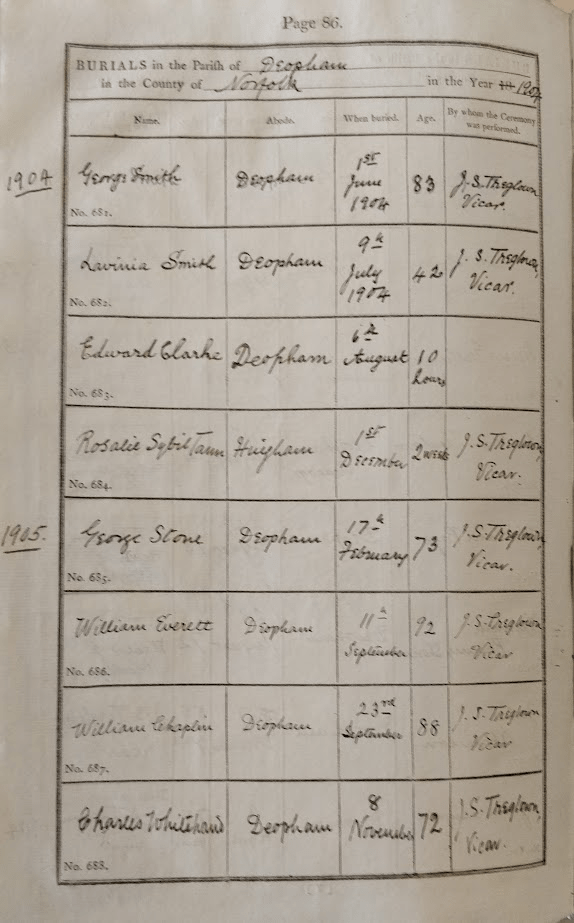 Page 86.
BURIALS in the Parish of Deopham
in the County of Norfolk in the Year 18 1904
Name. Abode. When buried. Age. By whom the Ceremony was performed.
1904
George Smith Deopham 1st June 1904 83 J.S. Treglown Vicar.
No. 681.
Lavinia Smith Deopham 9th July 1904 42 J. S. Treglown, Vicar.
No. 682.
Edward Clarke Deopham 6th August 10 hours
No. 683.
Rosalie Sybil Tann Hingham 1st December 2 weeks J.S. Treglown, Vicar.
No. 684.
1905.
George Stone Deopham 17th February 73 J.S. Treglown, Vicar.
No. 685.
William Everett Deopham 11th September 92 J.S. Treglown Vicar
No. 686.
William Chaplin Deopham 23rd September 88 J.S. Treglown Vicar
No. 687.
Charles Whitehand Deopham 8 November 72 J.S. Treglown, Vicar.
No. 688.